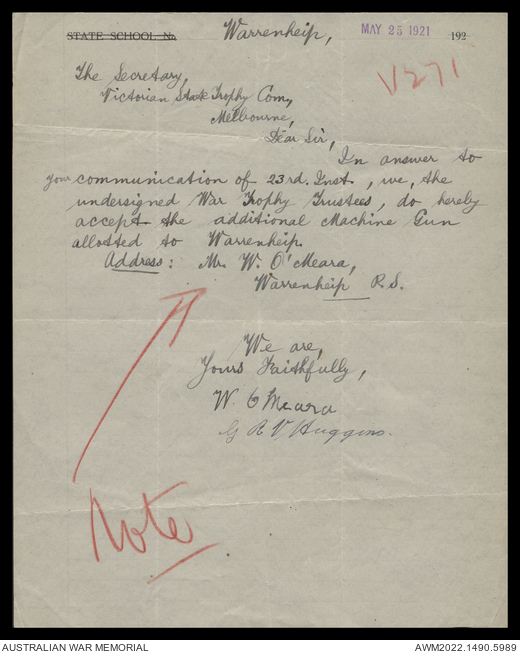 STATE SCHOOL No.
Warrenheip,
MAY 25 1921
192
V271
The Secretary,
Victorian State Trophy Com,
Melbourne,
Dear Sir,
In answer to
your communication of 23rd. Inst, we, the
undersigned War Trophy Trustees, do hereby
accept the additional Machine Gun
allotted to Warrenheip.
Address: Mr. W. O'Meara,
Warrenheip R.S.
We are,
Yours Faithfully,
W. O'Meara
G R V Huggins.
Note
AUSTRALIAN WAR MEMORIAL
AWM2022.1490.5989